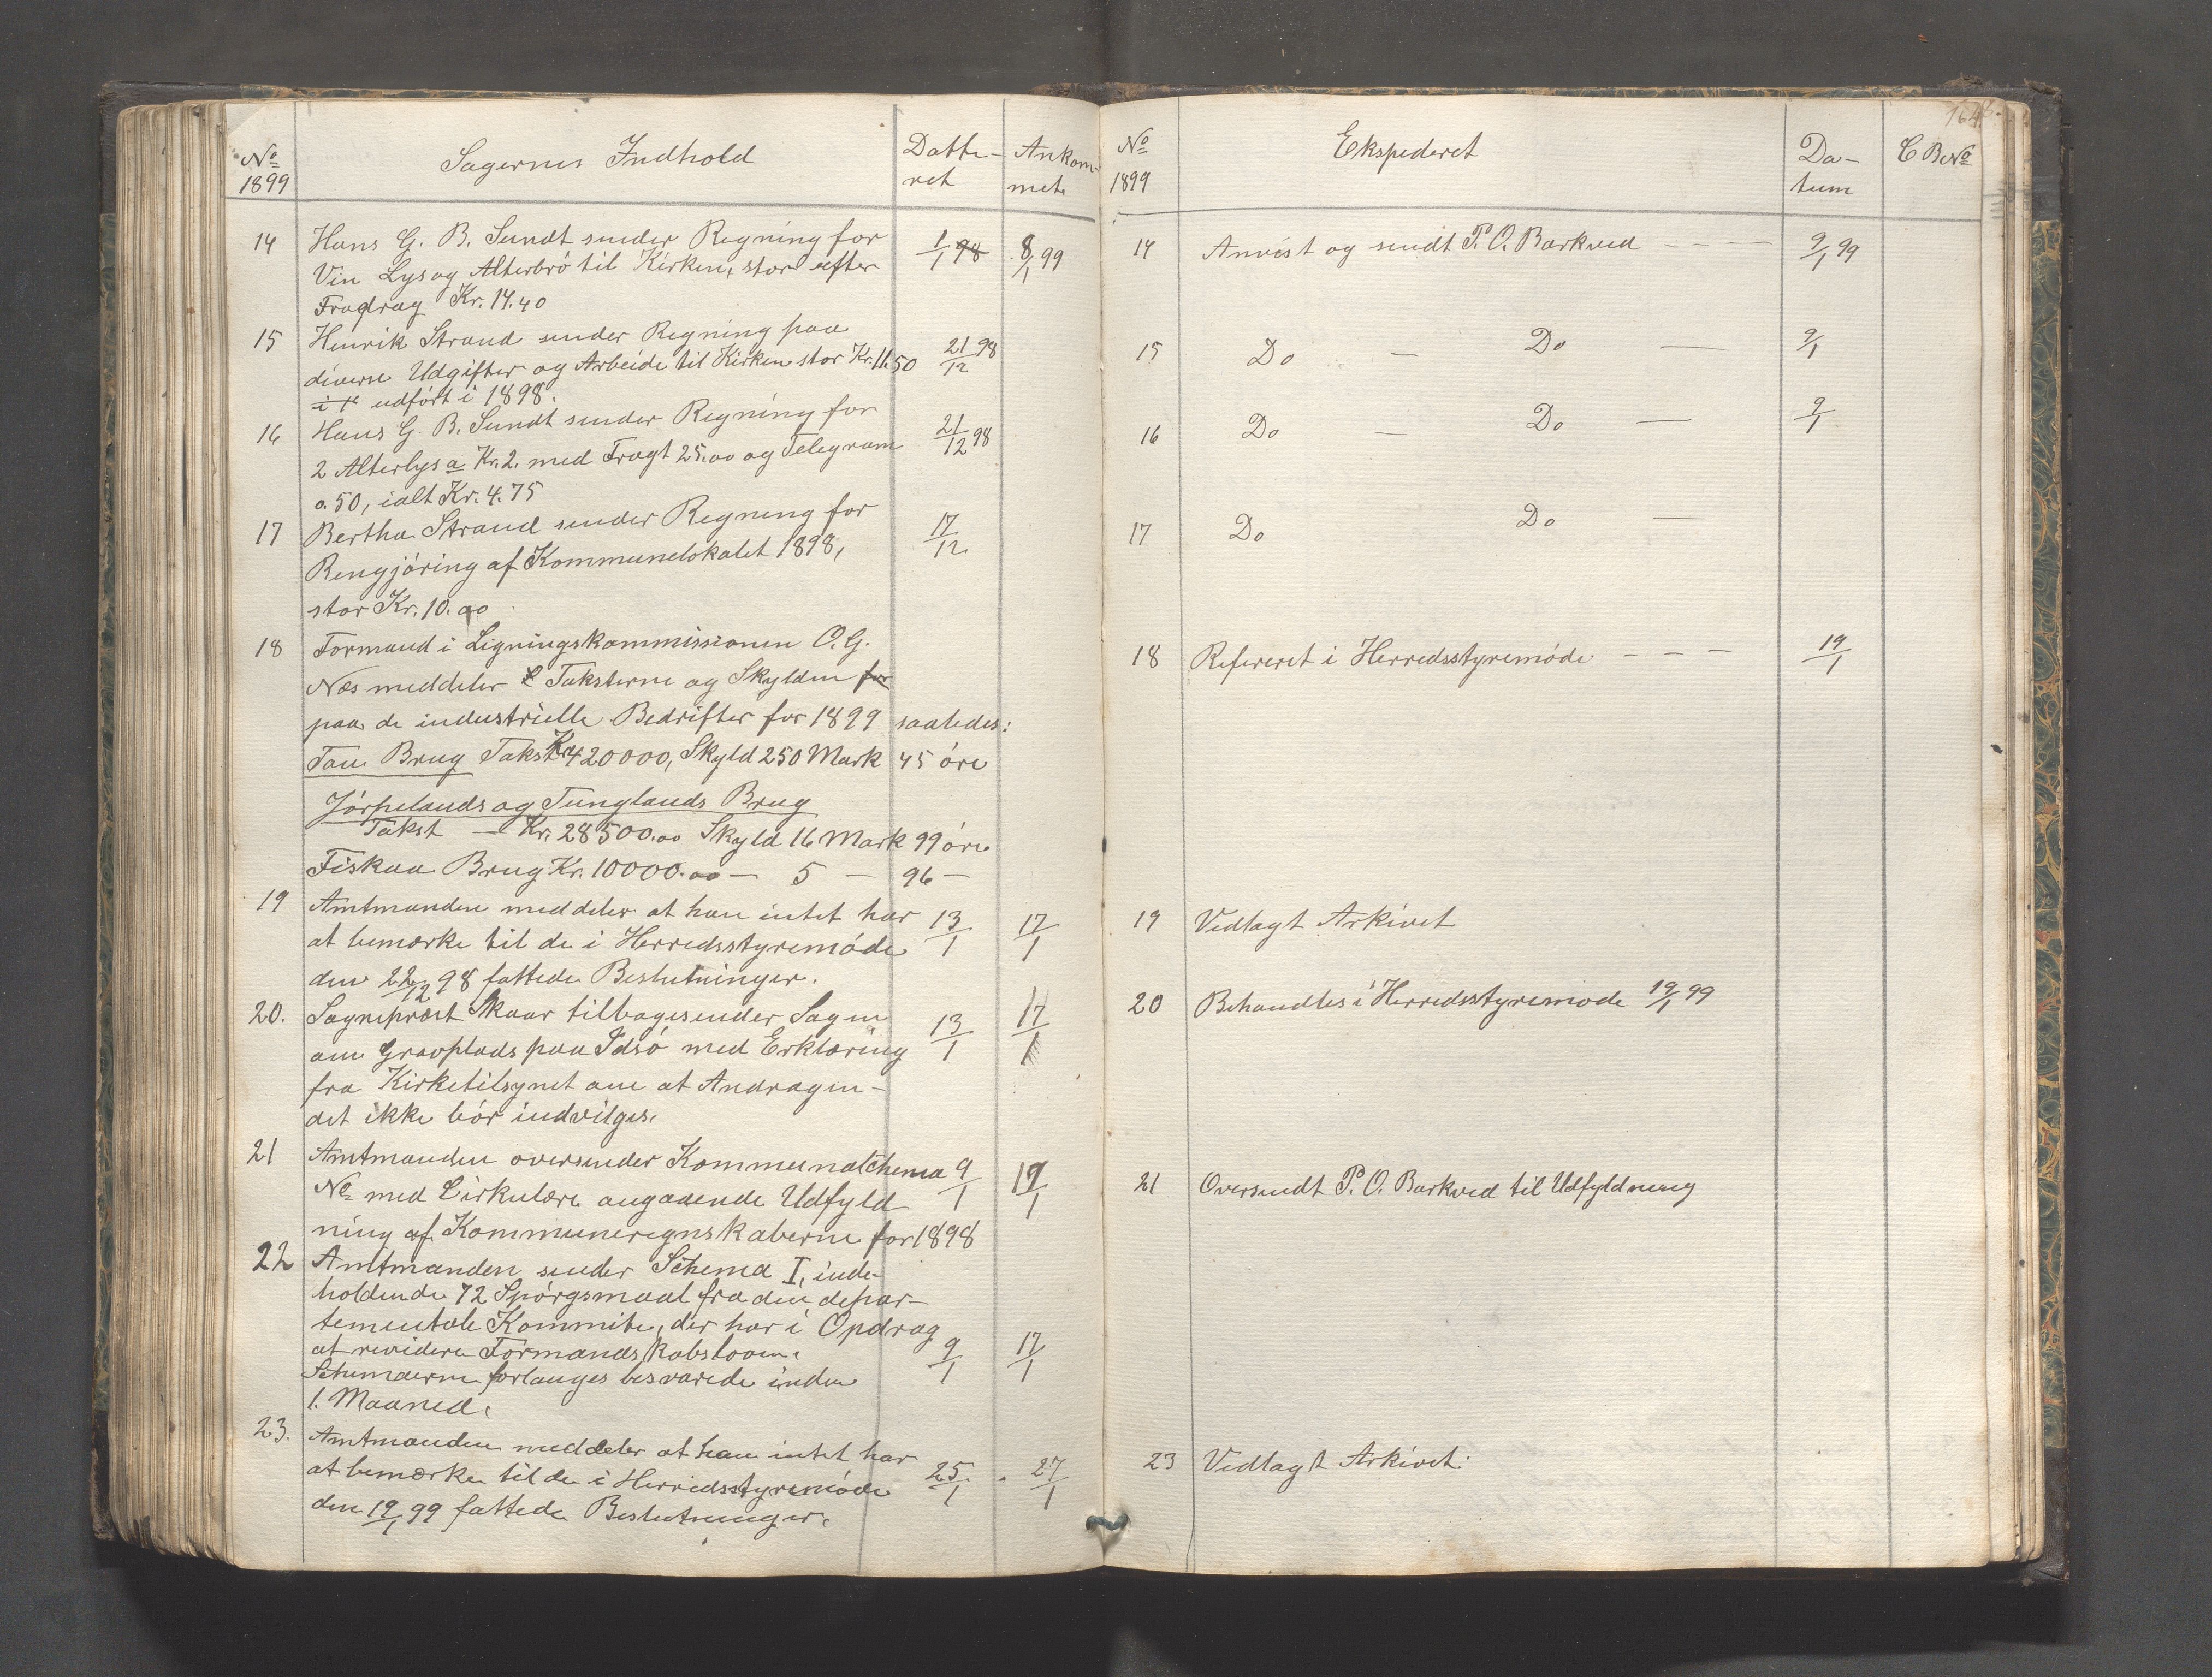 No 1899 Sagernes Indhold Datte- ret Ankom- met
14 Hans G. B. Sundt sender Regning for 1/1 98 8/1 99
Vin Lys og Alterbrö til Kirken, stor efter
Fradrag Kr. 14.40
15 Henrik Strand sender Regning paa
diverse Udgifter og Arbeide til Kirken stor Kr. 11.50 21/12 98
udfört i 1898.
16 Hans G. B. Sundt sender Regning for
2 Alterlys a Kr. 2. med Fragt 25.00 og Telegram 21/12 98
a. 50, ialt Kr. 4.75
17 Bertha Strand sender Regning for 17/12
Rengjöring af Kommunelokalet 1898,
stor Kr. 10.00
18 Formand i Ligningskommissionen O. G.
Næs meddeler Taksterne og Skylden for
paa de industrielle Bedrifter for 1899 saaledes:
Tau Brug Takst Kr. 420000, Skyld 250 Mark 45 öre
Jörpelands og Tunglands Brug
Takst — Kr. 28500.00 Skyld 16 Mark 99 öre
Fiskaa Brug Kr. 10000.00 — 5 — 96 —
19 Amtmanden meddeler at han intet har 13/1 17/1
at bemærke til de i Herredsstyremöde
den 22/12 98 fattede Beslutninger.
20. Sogneprest Skaar tilbagesender Sagen 13/1 17/1
om Gravplads paa Idsö med Erklæring
fra Kirketilsynet om at Andragen-
det ikke bör indvilges.
21 Amtmanden oversender Kommunalschema 9/1 19/1
No med Cirkulære angaaende Udfyld
ning af Kommuneregnskaberne for 1898
22 Amtmanden sender Schema I, inde-
holdende 72 Spörgsmaal fra den depar-
tementale Kommite, der har i Opdrag
at revidere Formandskabsloven. 9/1 17/1
Schemaerne forlanges besvarede inden
1. Maaned.
23. Amtmanden meddeler at han intet har
at bemærke til de i Herredsstyremöde 25/1 27/1
den 19/1 99 fattede Beslutninger.
164
No 1899 Ekspederet Da- tum C B No
14 Anvist og sendt P. O. Barkved — — — 9/1 99
15 Do — Do — 9/1
16 Do — Do — 9/1
17 Do Do —
18 Refereret i Herredsstyremöde — — — 19/1
19 Vedlagt Arkivet
20 Behandles i Herredsstyremode 19/1 99
21 Oversendt P. O. Barkved til Udfyldning
23 Vedlagt Arkivet.